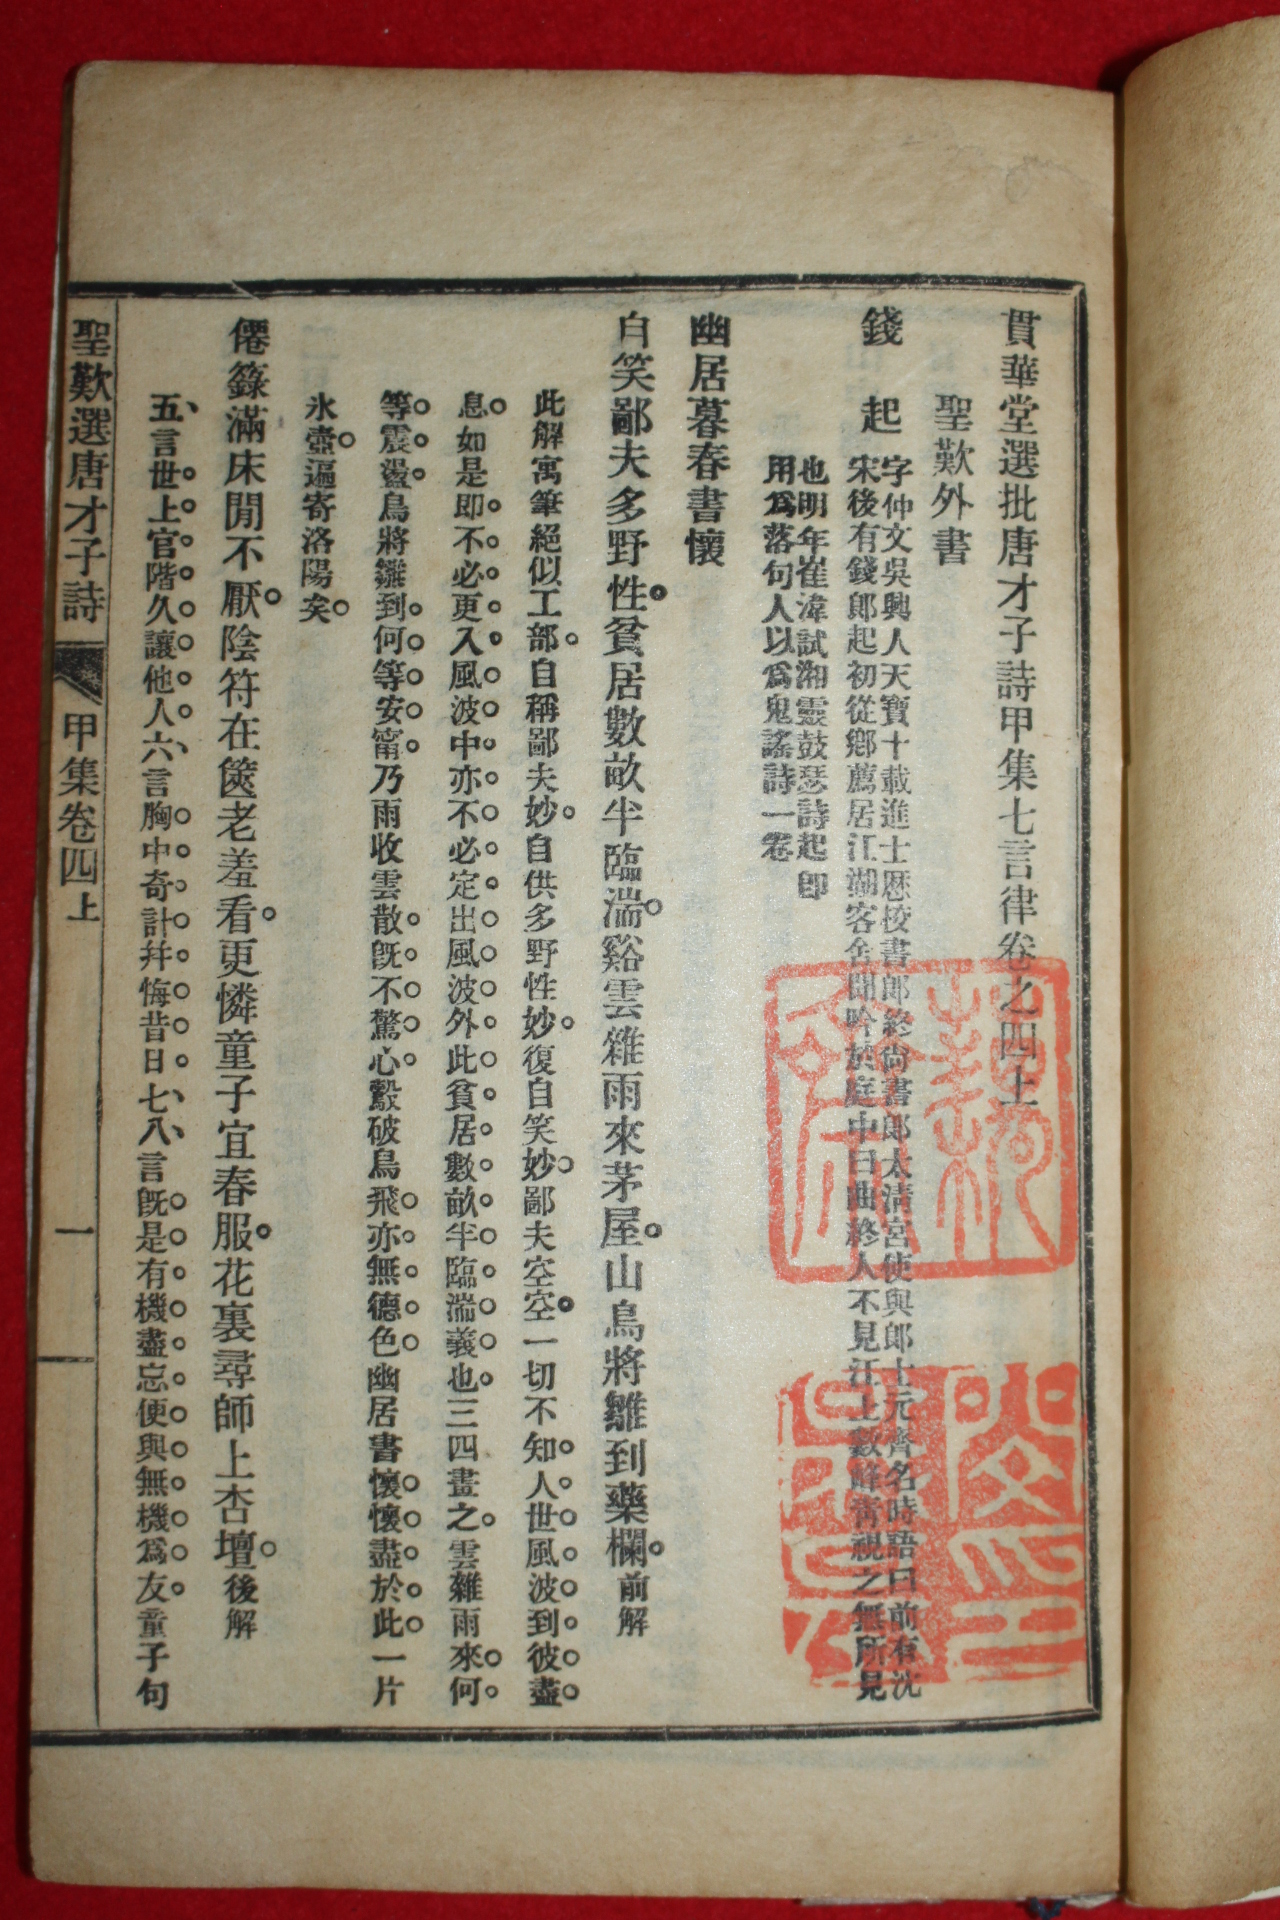 貫華堂選批唐才子詩甲集七言律卷之四上
聖歎外書
錢起
字仲文吳興人天寶十載進士歷校書郎終尚書郎太清宮使與郎士元齊名時語曰前有沈
宋後有錢郎起初從鄉薦居江湖客舍聞吟於庭中曰曲終人不見江上數峰靑視之無所見
也明年崔湋試湘靈鼓瑟詩起卽
用爲落句人以爲鬼謠詩一卷
幽居暮春書懷
自笑鄙夫多野性。貧居數畝半臨湍。谿雲雜雨來茅屋。山鳥將雛到藥欄。前解
此解寓筆絕似工部。自稱鄙夫妙。自供多野性妙。復自笑妙。鄙夫空空。一切不知。人世風波到彼盡
息。如是卽不必更入風波中。亦不必定出風波外。此貧居數畝半臨湍義也。三四畫之。雲雜雨來。何
等震盪。鳥將雛到。何等安甯。乃雨收雲散。旣不驚心。鷇破鳥飛。亦無德色。幽居書懷。懷盡於此。一片
氷壺。逼寄洛陽矣。
僊籙滿床閒不厭。陰符在篋老羞看。更憐童子宜春服。花裏尋師上杏壇。後解
五、言世上官階久讓他人。六、言胸中奇計幷悔昔日。七、八、言旣是有機盡忘。便與無機爲友。童子句
聖歎選唐才子詩 甲集卷四上 一